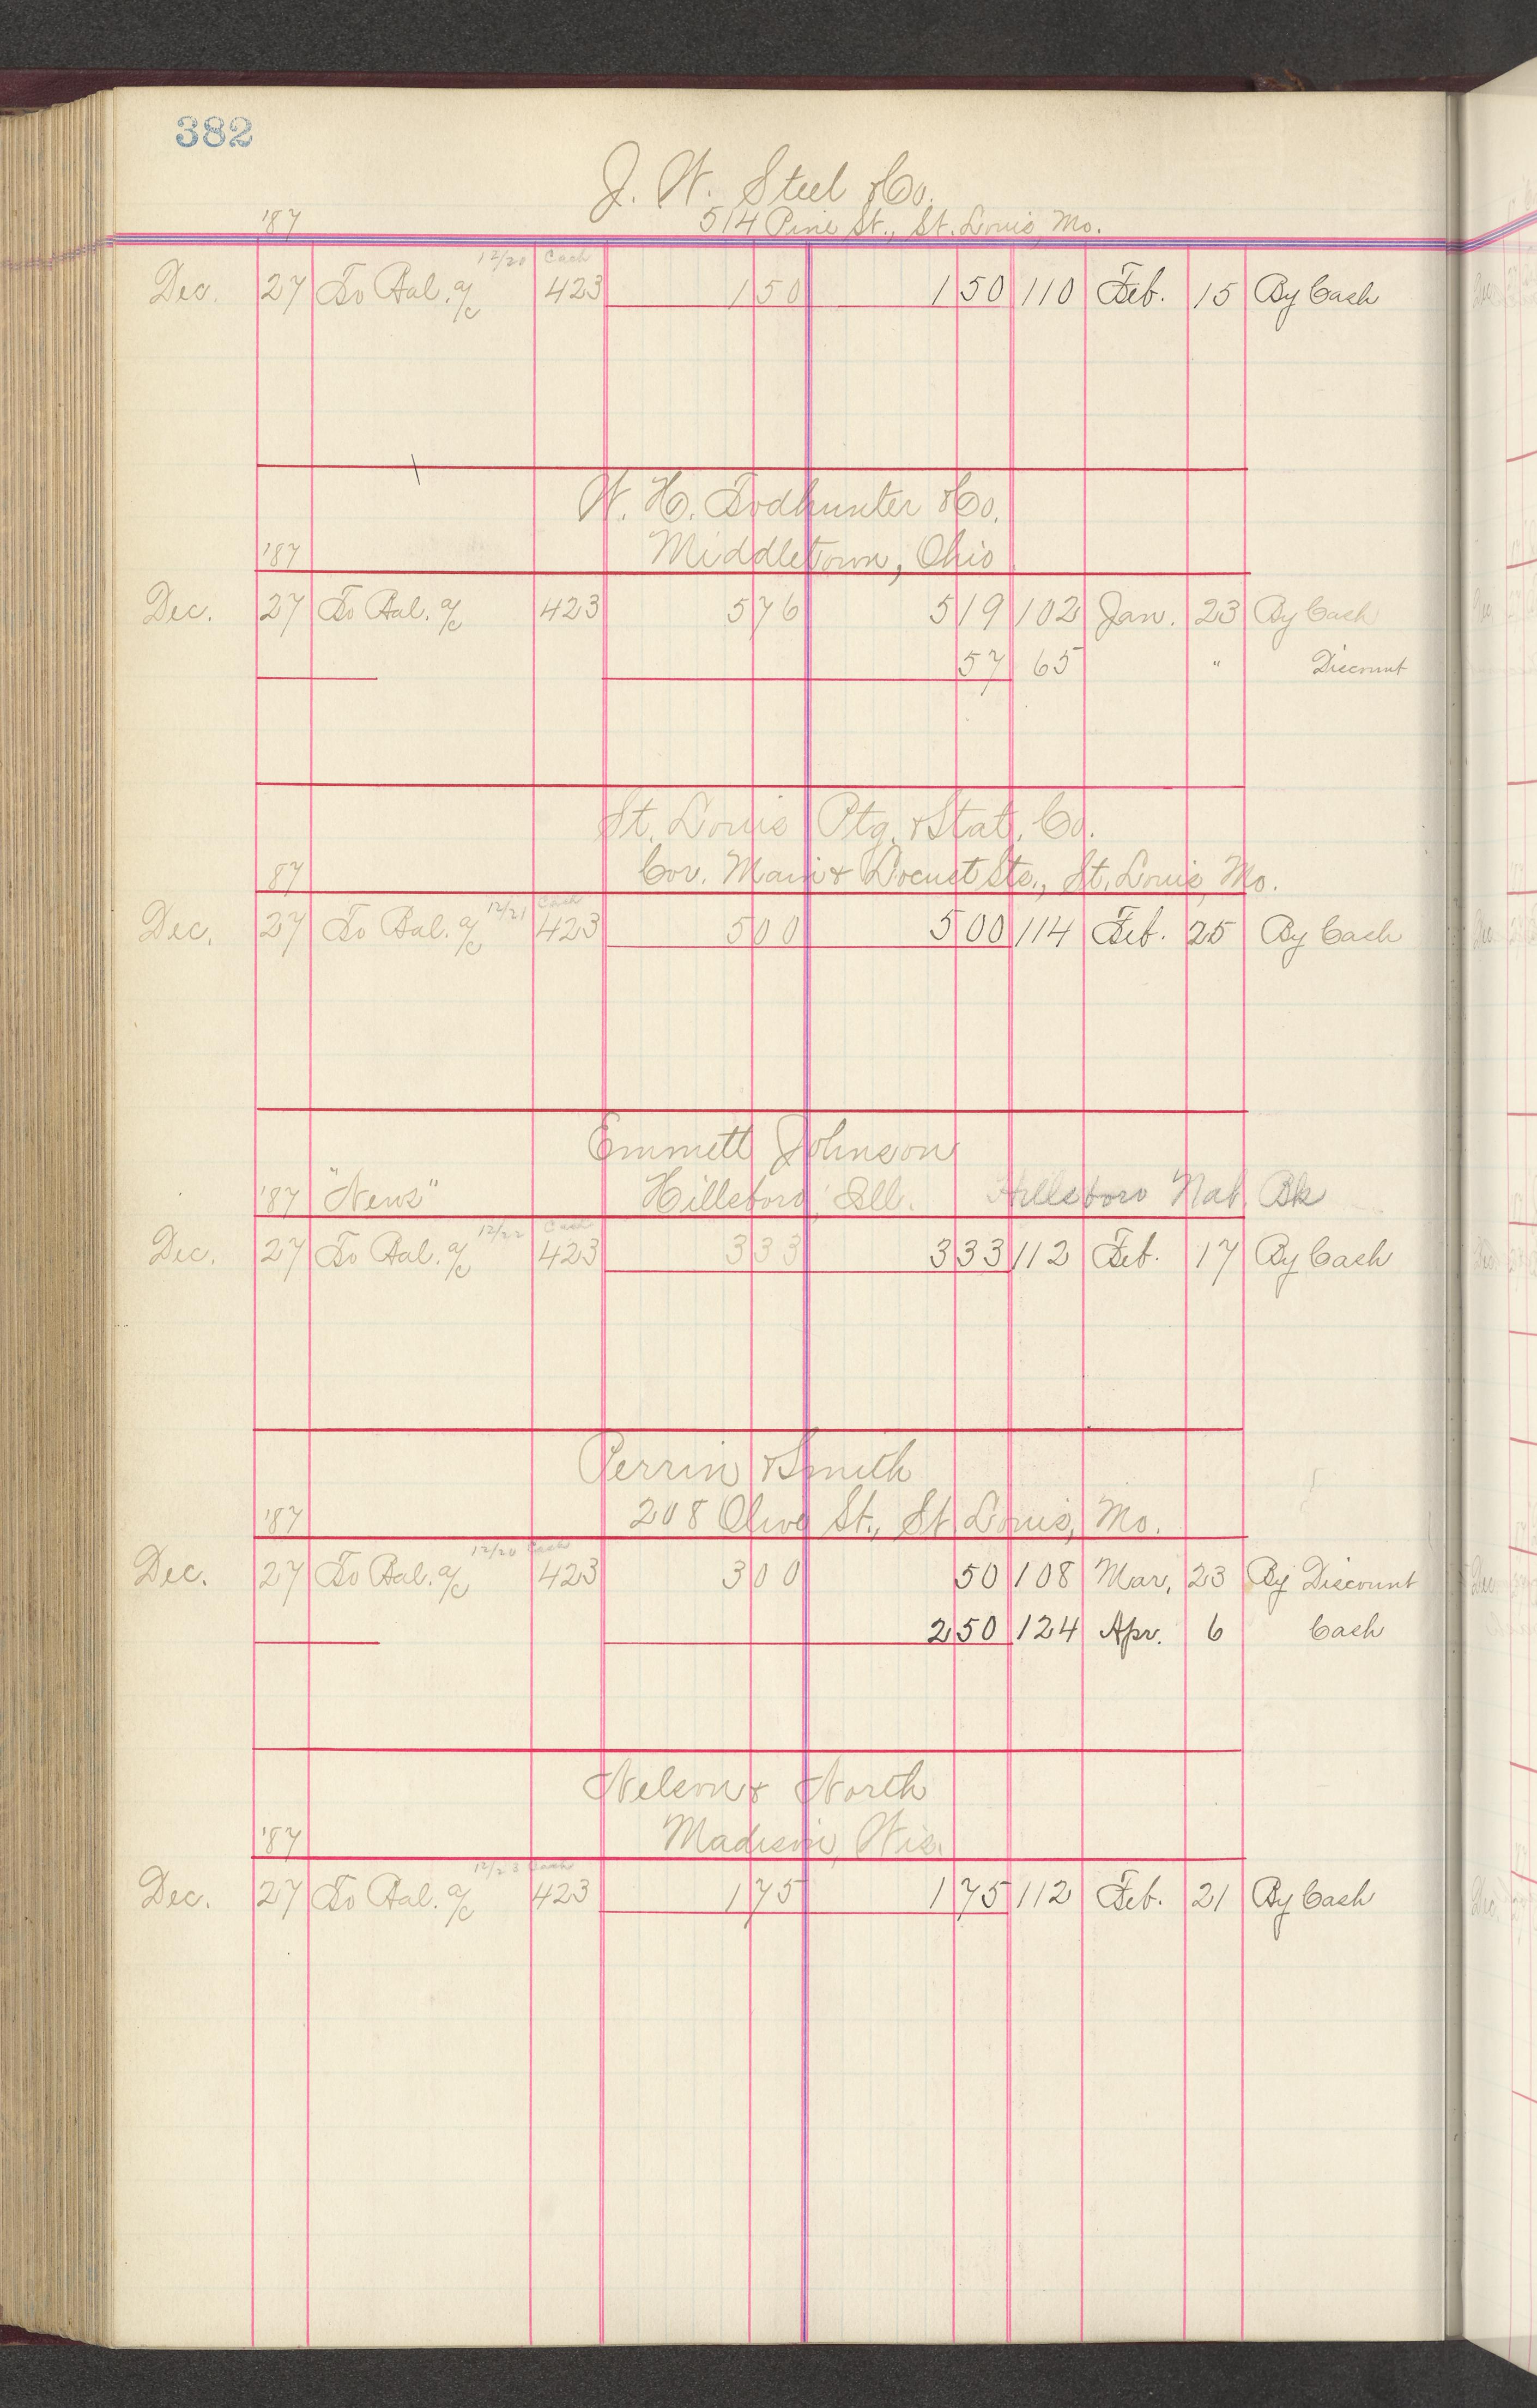 382
J. W. Steel & Co.
'87 514 Pine St., St. Louis Mo.
12/20 Cash
Dec. 27 To Bal. a/c 423 1 50 1 50 110 Feb. 15 By Cash
W. H. Todhunter & Co.
'87 Middletown, Ohio
Dec. 27 To Bal. a/c 423 5 76 5 19 102 Jan. 23 By Cash
57 65 " Discount
St. Louis Ptg. & Stat. Co.
87 Cor. Main & Locust Sts., St. Louis, Mo.
12/21 Cash
Dec. 27 To Bal. a/c 423 5 00 5 00 114 Feb. 25 By Cash
Emmett Johnson
'87 "News" Hillsboro, Ill. Hillsboro Nat. Bk
12/22 Cash
Dec. 27 To Bal. a/c 423 3 33 3 33 112 Feb. 17 By Cash
Perrin & Smith
'87 208 Olive St., St. Louis, Mo.
12/20 Cash
Dec. 27 To Bal. a/c 423 3 00 50 108 Mar. 23 By Discount
2 50 124 Apr. 6 Cash
Nelson & North
'87 Madison, Wis.
12/23 Cash
Dec. 27 To Bal. a/c 423 1 75 1 75 112 Feb. 21 By Cash